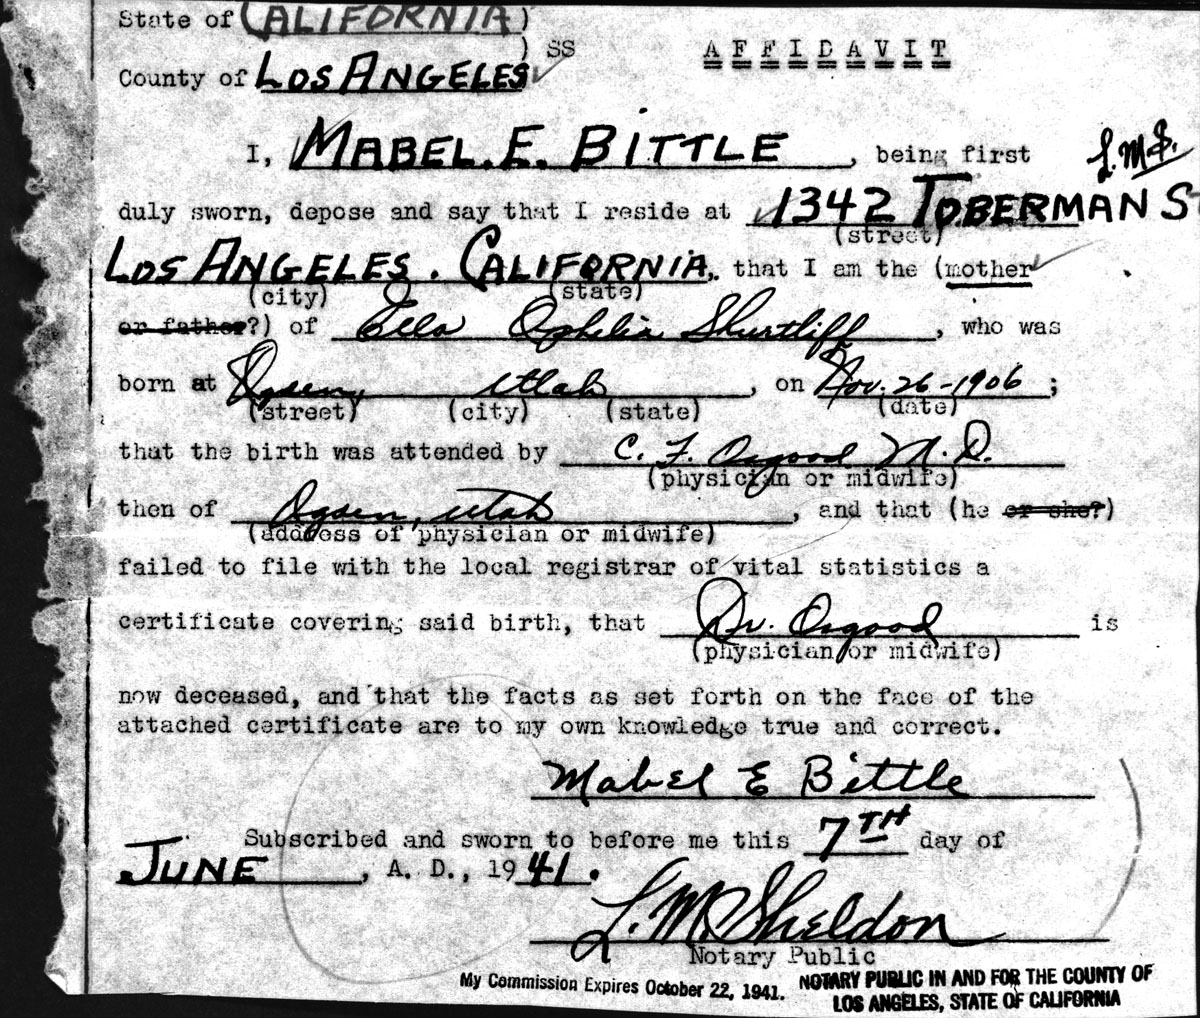 State of CALIFORNIA )
) SS
AFFIDAVIT
County of LOS ANGELES
I, MABEL. E. BITTLE, being first
L.M.S.
duly sworn, depose and say that I reside at 1342 TOBERMAN S
(street)
LOS ANGELES. CALIFORNIA, that I am the (mother
(city) (state)
or father?) of Ella Ophelia Shurtliff, who was
born at Ogden, Utah, on Nov. 26-1906;
(street) (city) (state) (date)
that the birth was attended by C. F. Osgood M.D.
(physician or midwife)
then of Ogden, Utah, and that (he or she?)
(address of physician or midwife)
failed to file with the local registrar of vital statistics a
certificate covering said birth, that Dr. Osgood is
(physician or midwife)
now deceased, and that the facts as set forth on the face of the
attached certificate are to my own knowledge true and correct.
Mabel E Bittle
Subscribed and sworn to before me this 7TH day of
JUNE, A. D., 1941.
L.M. Sheldon
Notary Public
My Commission Expires October 22, 1941.
NOTARY PUBLIC IN AND FOR THE COUNTY OF
LOS ANGELES, STATE OF CALIFORNIA